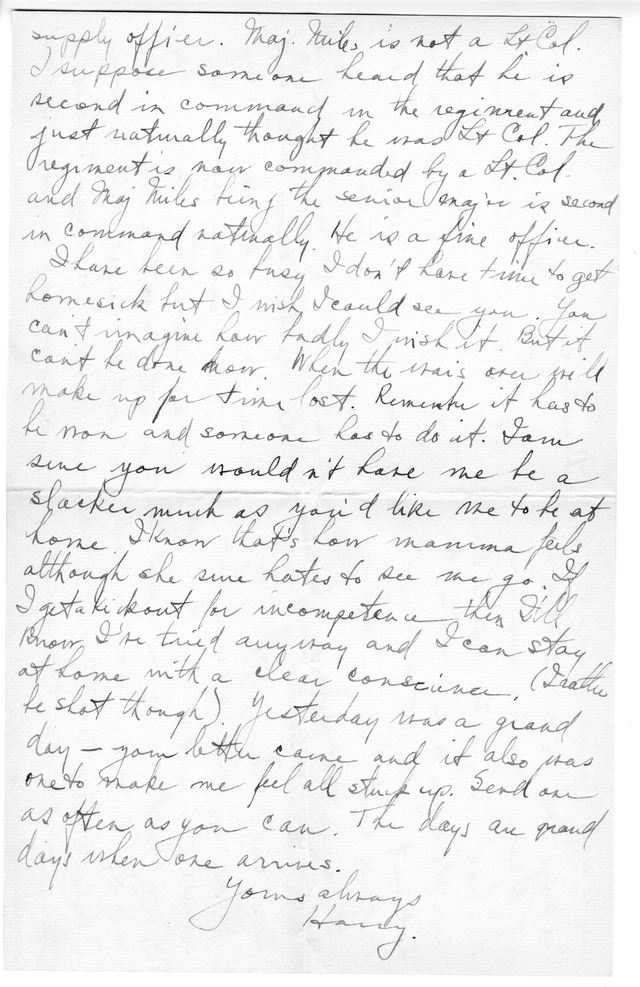 supply officer. Maj. Miles is not a Lt Col.
I suppose someone heard that he is
second in command in the regiment and
just naturally thought he was Lt Col. The
regiment is now commanded by a Lt. Col.
and Maj Miles being the senior major is second
in command naturally. He is a fine officer.
I have been so busy I don't have time to get
homesick but I wish I could see you. You
can't imagine how badly I wish it. But it
can't be done now. When the war is over we'll
make up for time lost. Remember it has to
be won and someone has to do it. I am
sure you wouldn't have me be a
slacker much as you'd like me to be at
home. I know that's how mamma feels
although she sure hates to see me go. If
I get a kickout for incompetence then I'll
know I've tried anyway and I can stay
at home with a clear conscience, (I rather
be shot though). Yesterday was a grand
day — your letter came and it also was
one to make me feel all stuck up. Send one
as often as you can. The days are grand
days when one arrives.
Yours always
Harry.